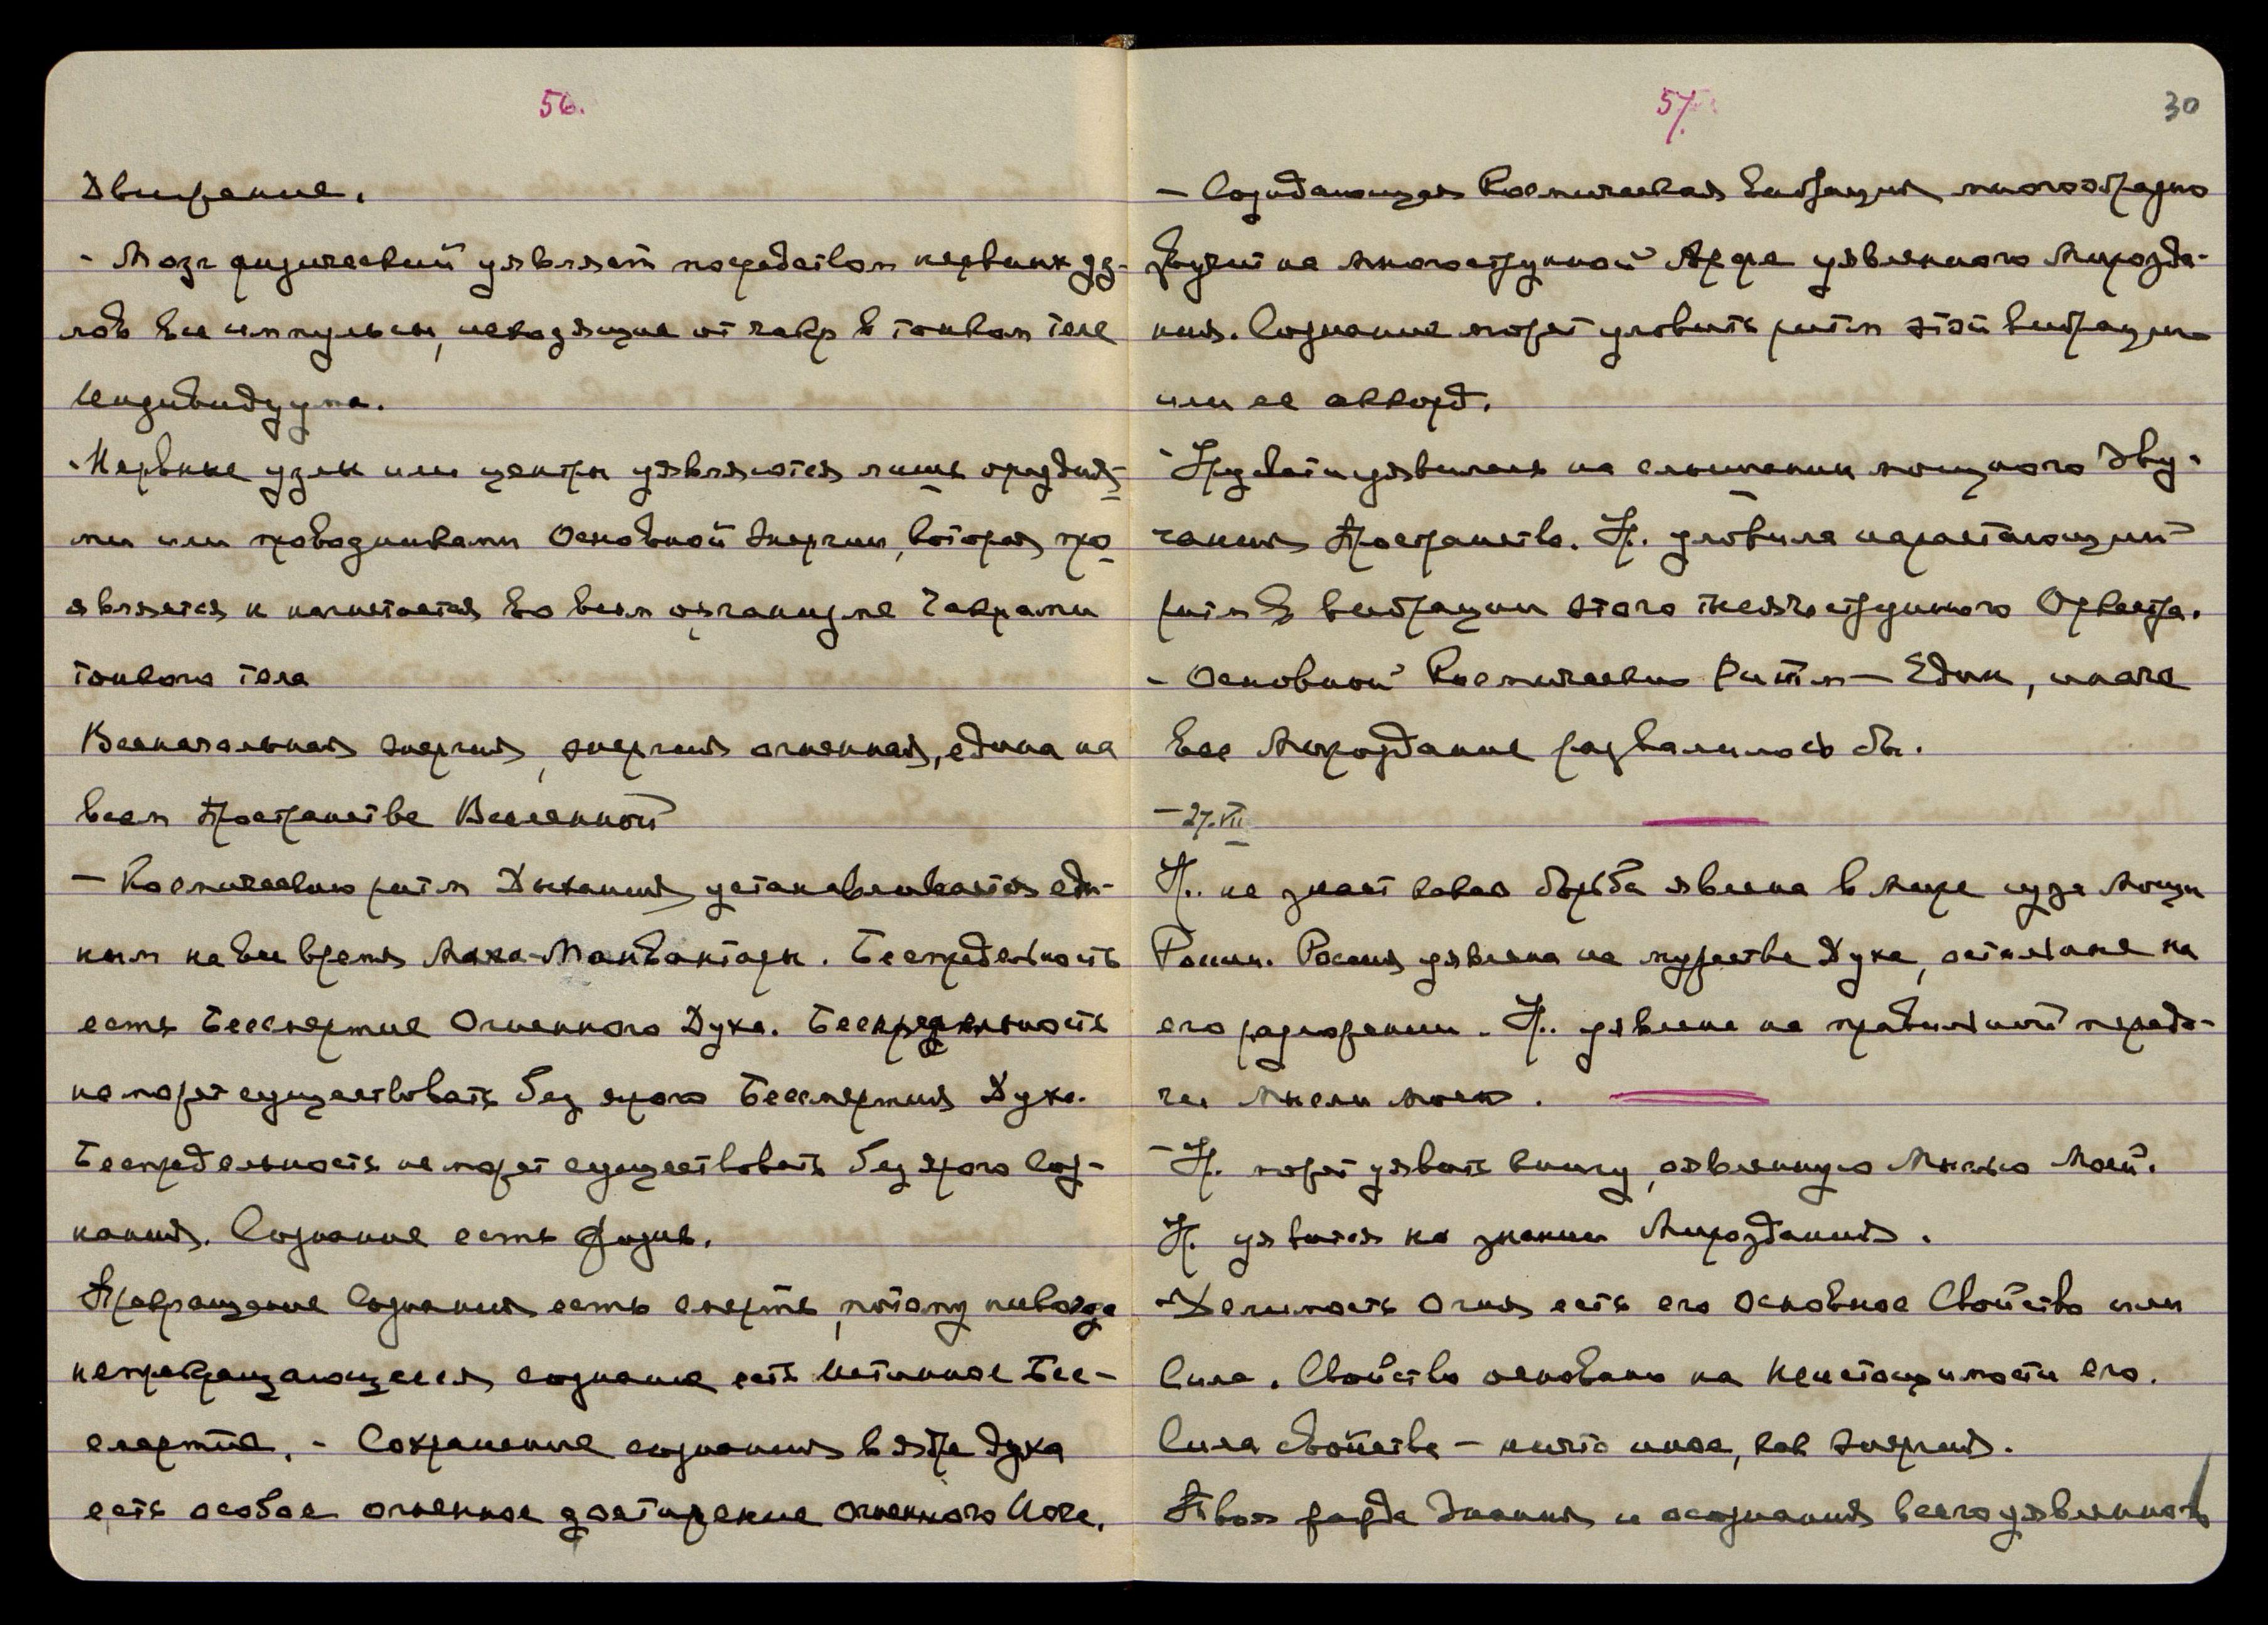 56.
Движение.
- Мозг физический уявляет посредством нервных уз-
лов все импульсы, исходящие от чакр в тонком теле
Индивидуума.
- Нервные узлы или центры уявляются лишь орудия-
ми или проводниками Основной Энергии, которая про
является и нагнетается во всем организме Чакрами
тонкого тела
Всеначальная энергия, энергия огненная, едина на
всем Пространстве Вселенной
- Космический ритм Дыхания устанавливается еди-
ным на все время Маха-Манвантары. Беспредельность
есть Бессмертие Огненного Духа. Беспредельность
не может существовать без ярого Бессмертия Духа.
Беспредельность не может существовать без ярого Соз-
нания. Сознание есть Жизнь.
Прекращение Сознания есть смерть, потому никогда
непрекращающееся сознание есть Истинное Бес-
смертие. - Сохранение сознания в ядре духа
есть особое огненное достижение огненного Йога.
57.
30
- Созидающая Космическая Вибрация многообразно
звучит на многострунной Арфе уявленного Мирозда-
ния. Сознание может уловить ритм этой вибрации
или ее аккорд.
- Ур. уявилась на слышании мощного Зву-
чания Пространства. Ур. уловила нарастающий
ритм вибрации этого тысячеструнного Оркестра.
- Основной Космический Ритм - Един, иначе
все Мироздание развалилось бы.
- 27.VII
Ур. не знает какая борьба явлена в Мире из-за Мощи
России. Россия уявлена на мужестве Духа, остальные на
его разложении. Ур. уявлена на правильной переда-
че Мысли Моей.
- Ур. может уявить книгу, оявленную Мыслью Моей.
Ур. уявится на знании Мироздания.
- Делимость Огня есть его Основное Свойство или
Сила. Свойство основано на Неистощимости его.
Сила свойства - ничто иное, как Энергия.
Твоя жажда Знания и осознания всего уявленного